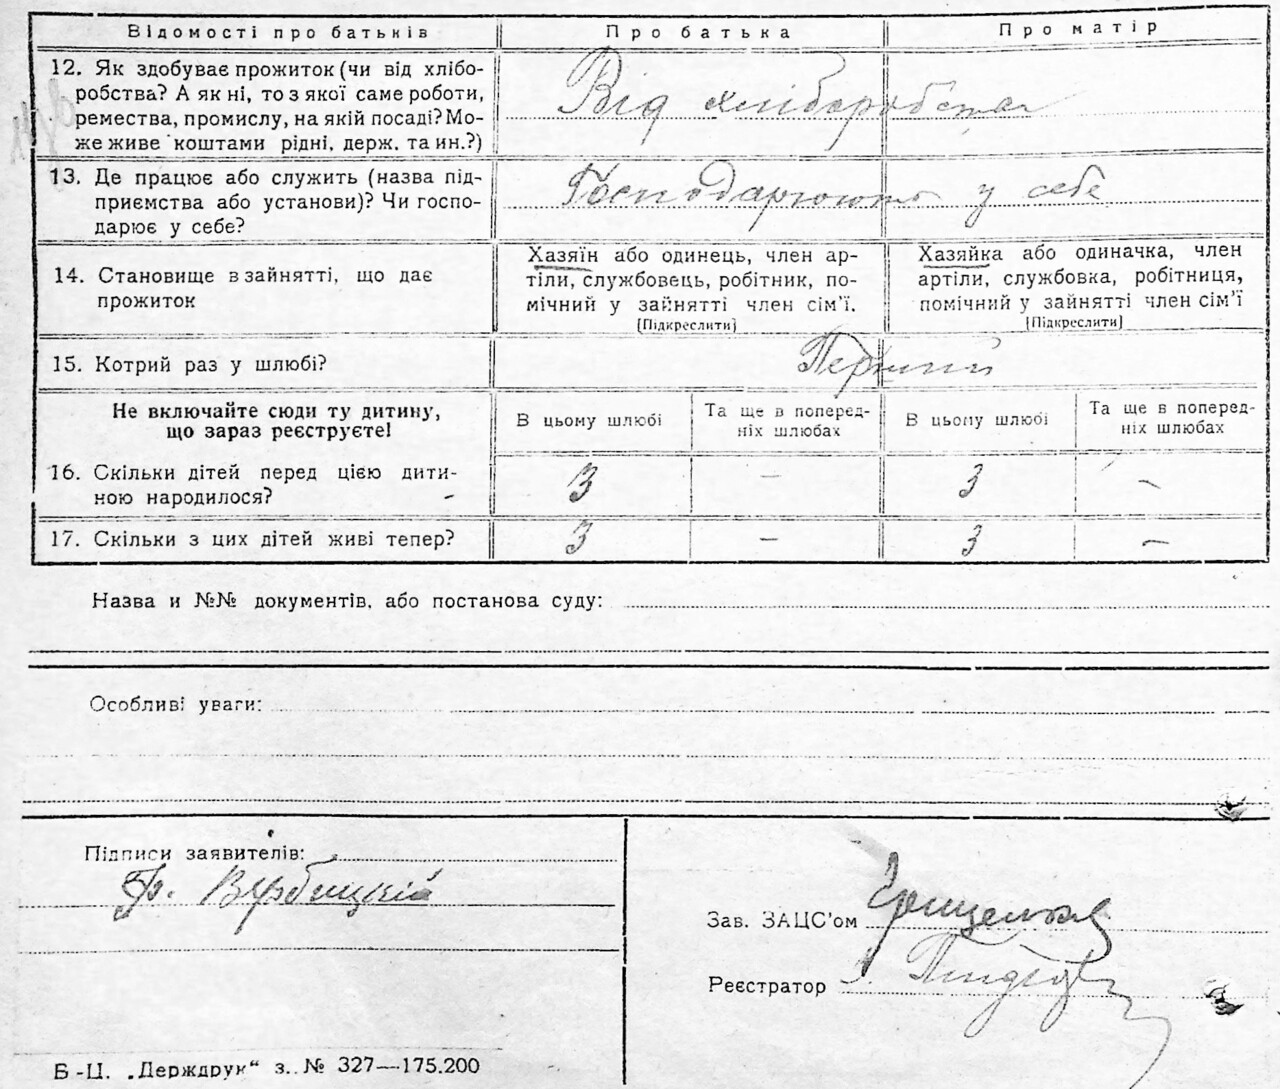 Відомості про батьків Про батька Про матір
12. Як здобуває прожиток (чи від хлібо-
робства? А як ні, то з якої саме роботи,
ремества, промислу, на якій посаді? Мо-
же живе коштами рідні, держ. та ин.?)
Від хліборобства
13. Де працює або служить (назва під-
приємства або установи)? Чи госпо-
дарює у себе?
Господарюють у себе
14. Становище в зайнятті, що дає
прожиток
Хазяїн або одинець, член ар-
тіли, службовець, робітник, по-
мічний у зайнятті член сім'ї.
(Підкреслити)
Хазяйка або одиначка, член
артіли, службовка, робітниця,
помічний у зайнятті член сім'ї
(Підкреслити)
15. Котрий раз у шлюбі?
Перший
Не включайте сюди ту дитину,
що зараз реєструєте!
В цьому шлюбі
Та ще в поперед-
ніх шлюбах
В цьому шлюбі
Та ще в поперед-
ніх шлюбах
16. Скільки дітей перед цією дити-
ною народилося?
3 – 3 –
17. Скільки з цих дітей живі тепер? 3 – 3 –
Назва и №№ документів, або постанова суду:
Особливі уваги:
Підписи заявителів:
Гр. Вербицкій
Зав. ЗАЦС'ом Грищенко
Реєстратор
Б-Ц. „Держдрук“ з. № 327—175.200